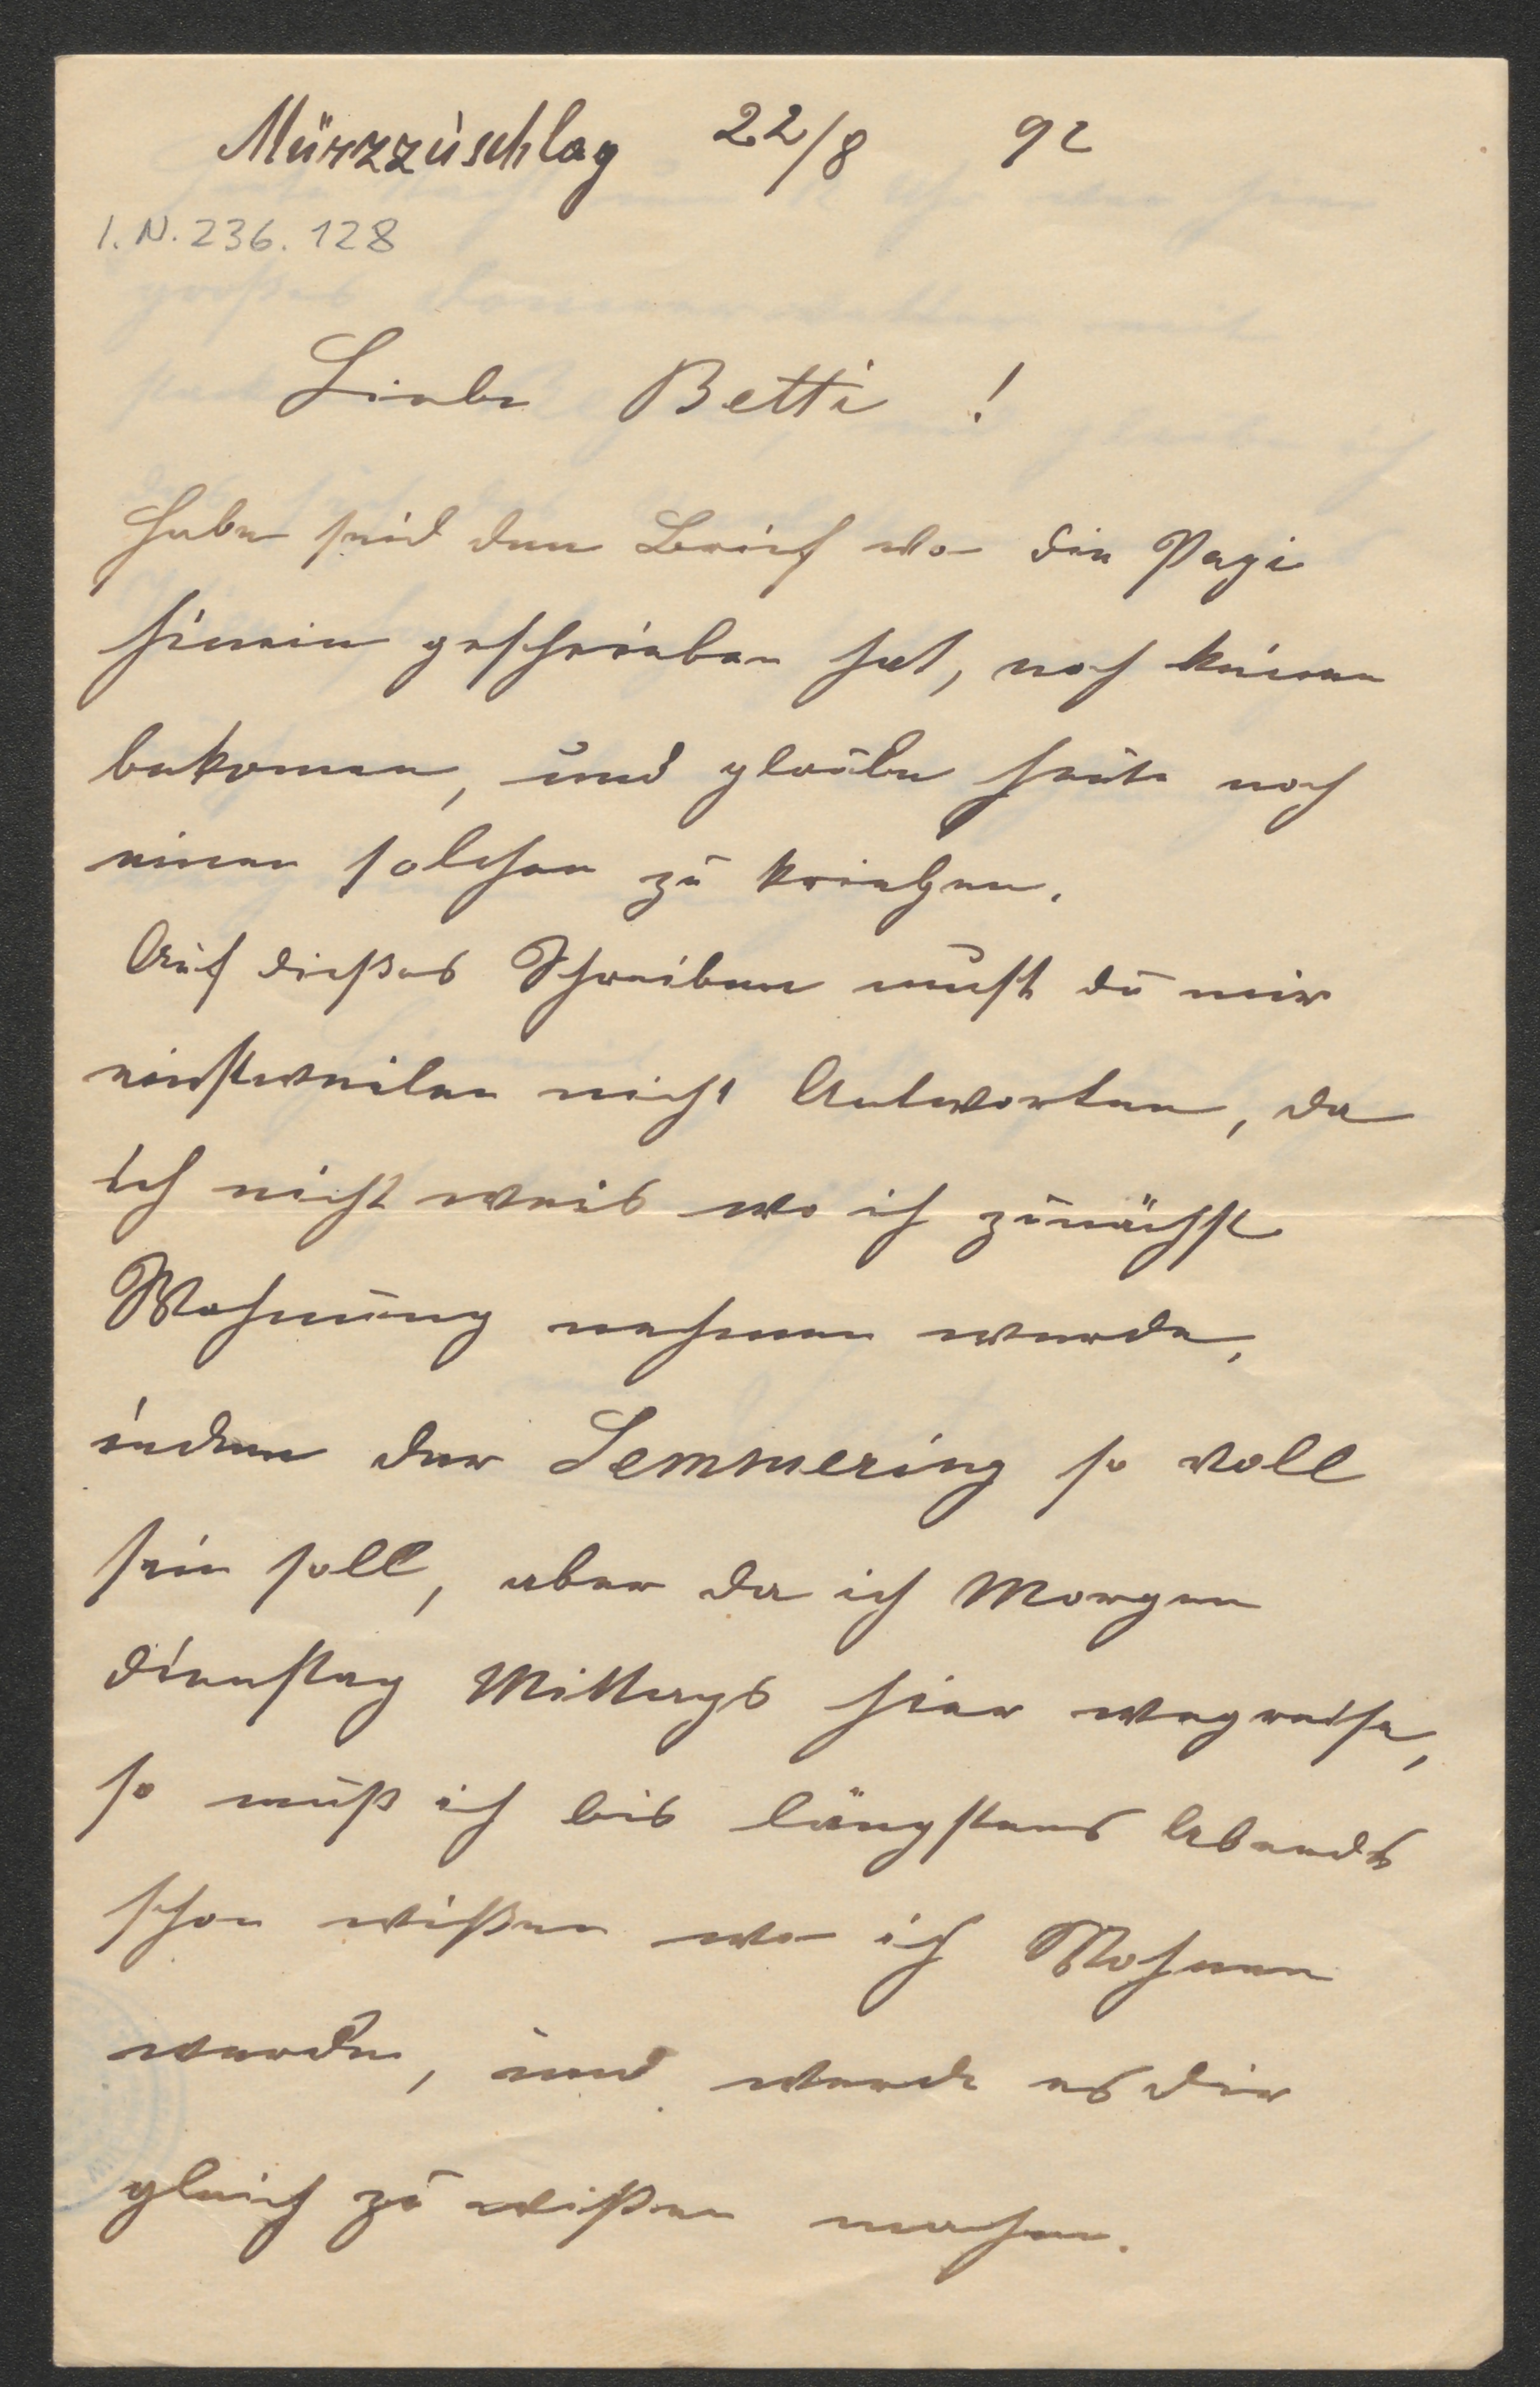 Mürzzuschlag 22/8 92
I.N. 236.128
Liebe Betti !
Habe seid dem Brief wo die Pepi
hinein geschrieben hat, noch keinen
bekomen, und glaube heute noch
einen solchen zu kriegen.
Auf dießes Schreiben must du mir
einstweilen nicht Antworten, da
ich nicht weis wo ich zunächst
Wohnung nehmen werde,
indem der Semmering so voll
sein soll, aber da ich Morgen
dienstag Mittags hier wegreise,
so muß ich bis längstens Abends
schon wißen wo ich Wohnen
werde, und werde es dir
gleich zu wißen machen.